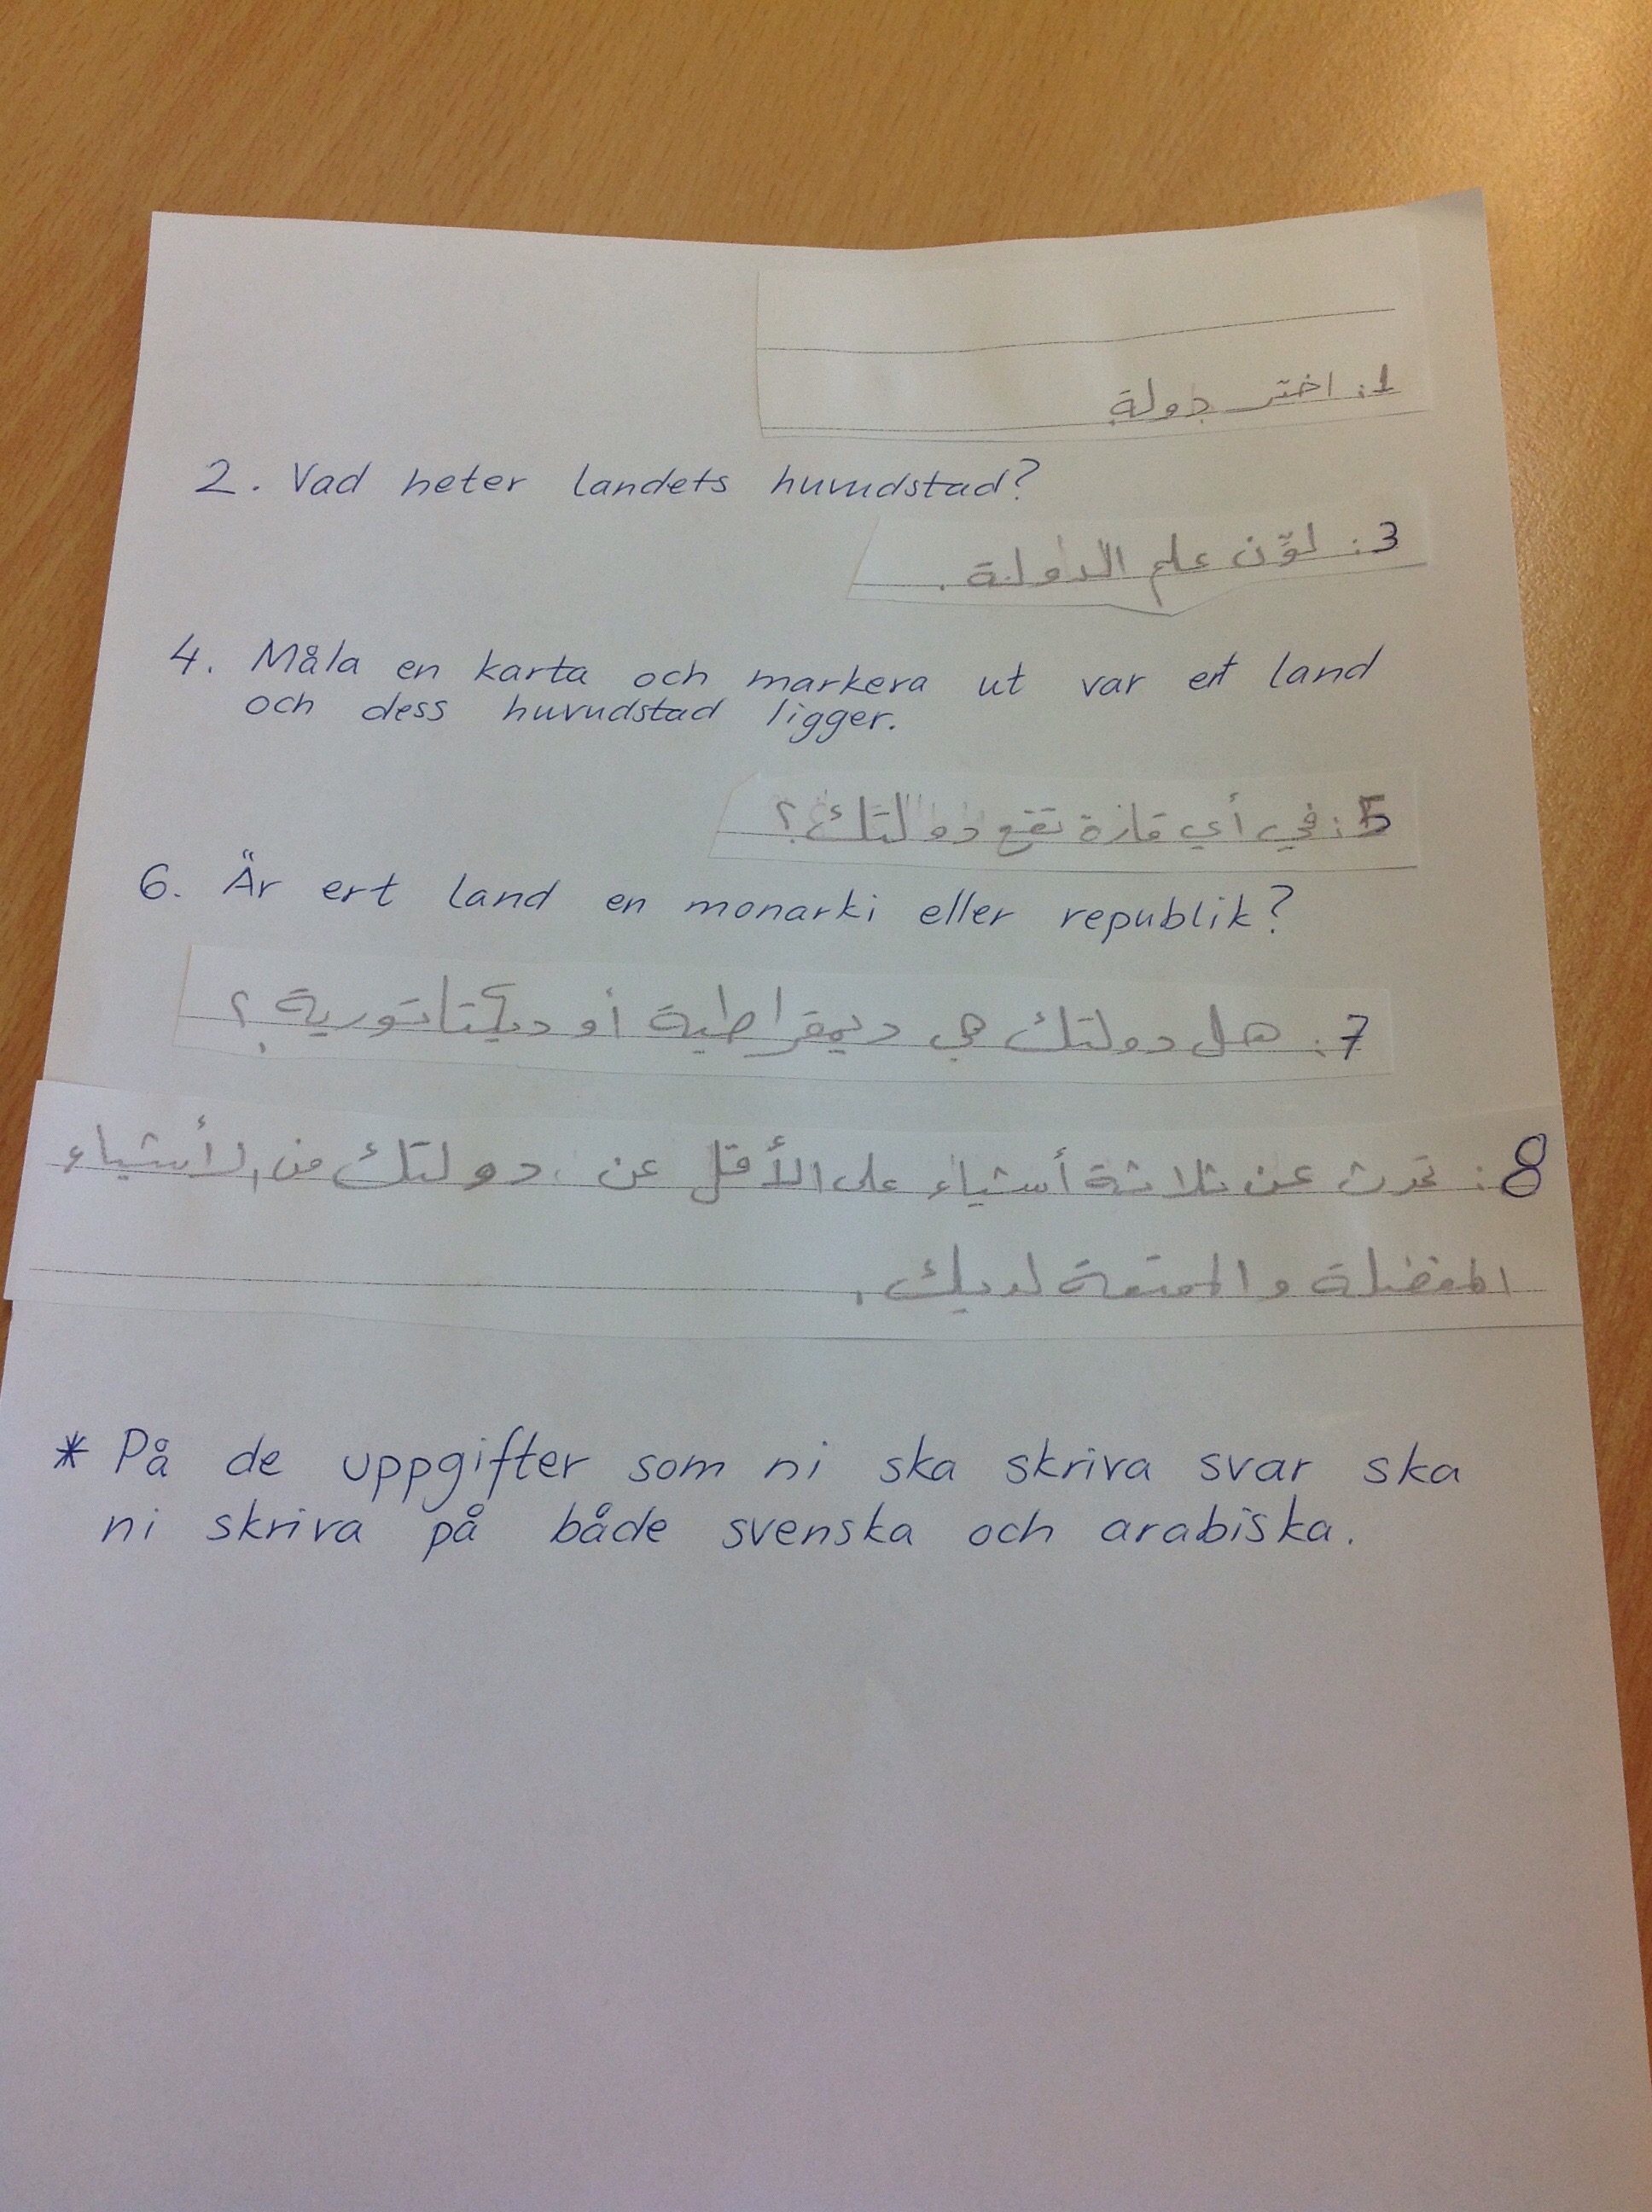 1: اختر دولة
2. Vad heter landets huvudstad?
3: لوِّن علم الدولة.
4. Måla en karta och markera ut var ert land
och dess huvudstad ligger.
5: في أي قارة تقع دولتك؟
6. Är ert land en monarki eller republik?
7: هل دولتك هي ديمقراطية أو ديكتاتورية؟
8: تحدث عن ثلاثة أشياء على الأقل عن دولتك من الأشياء
المفضلة والممتعة لديك.
* På de uppgifter som ni ska skriva svar ska
ni skriva på både svenska och arabiska.